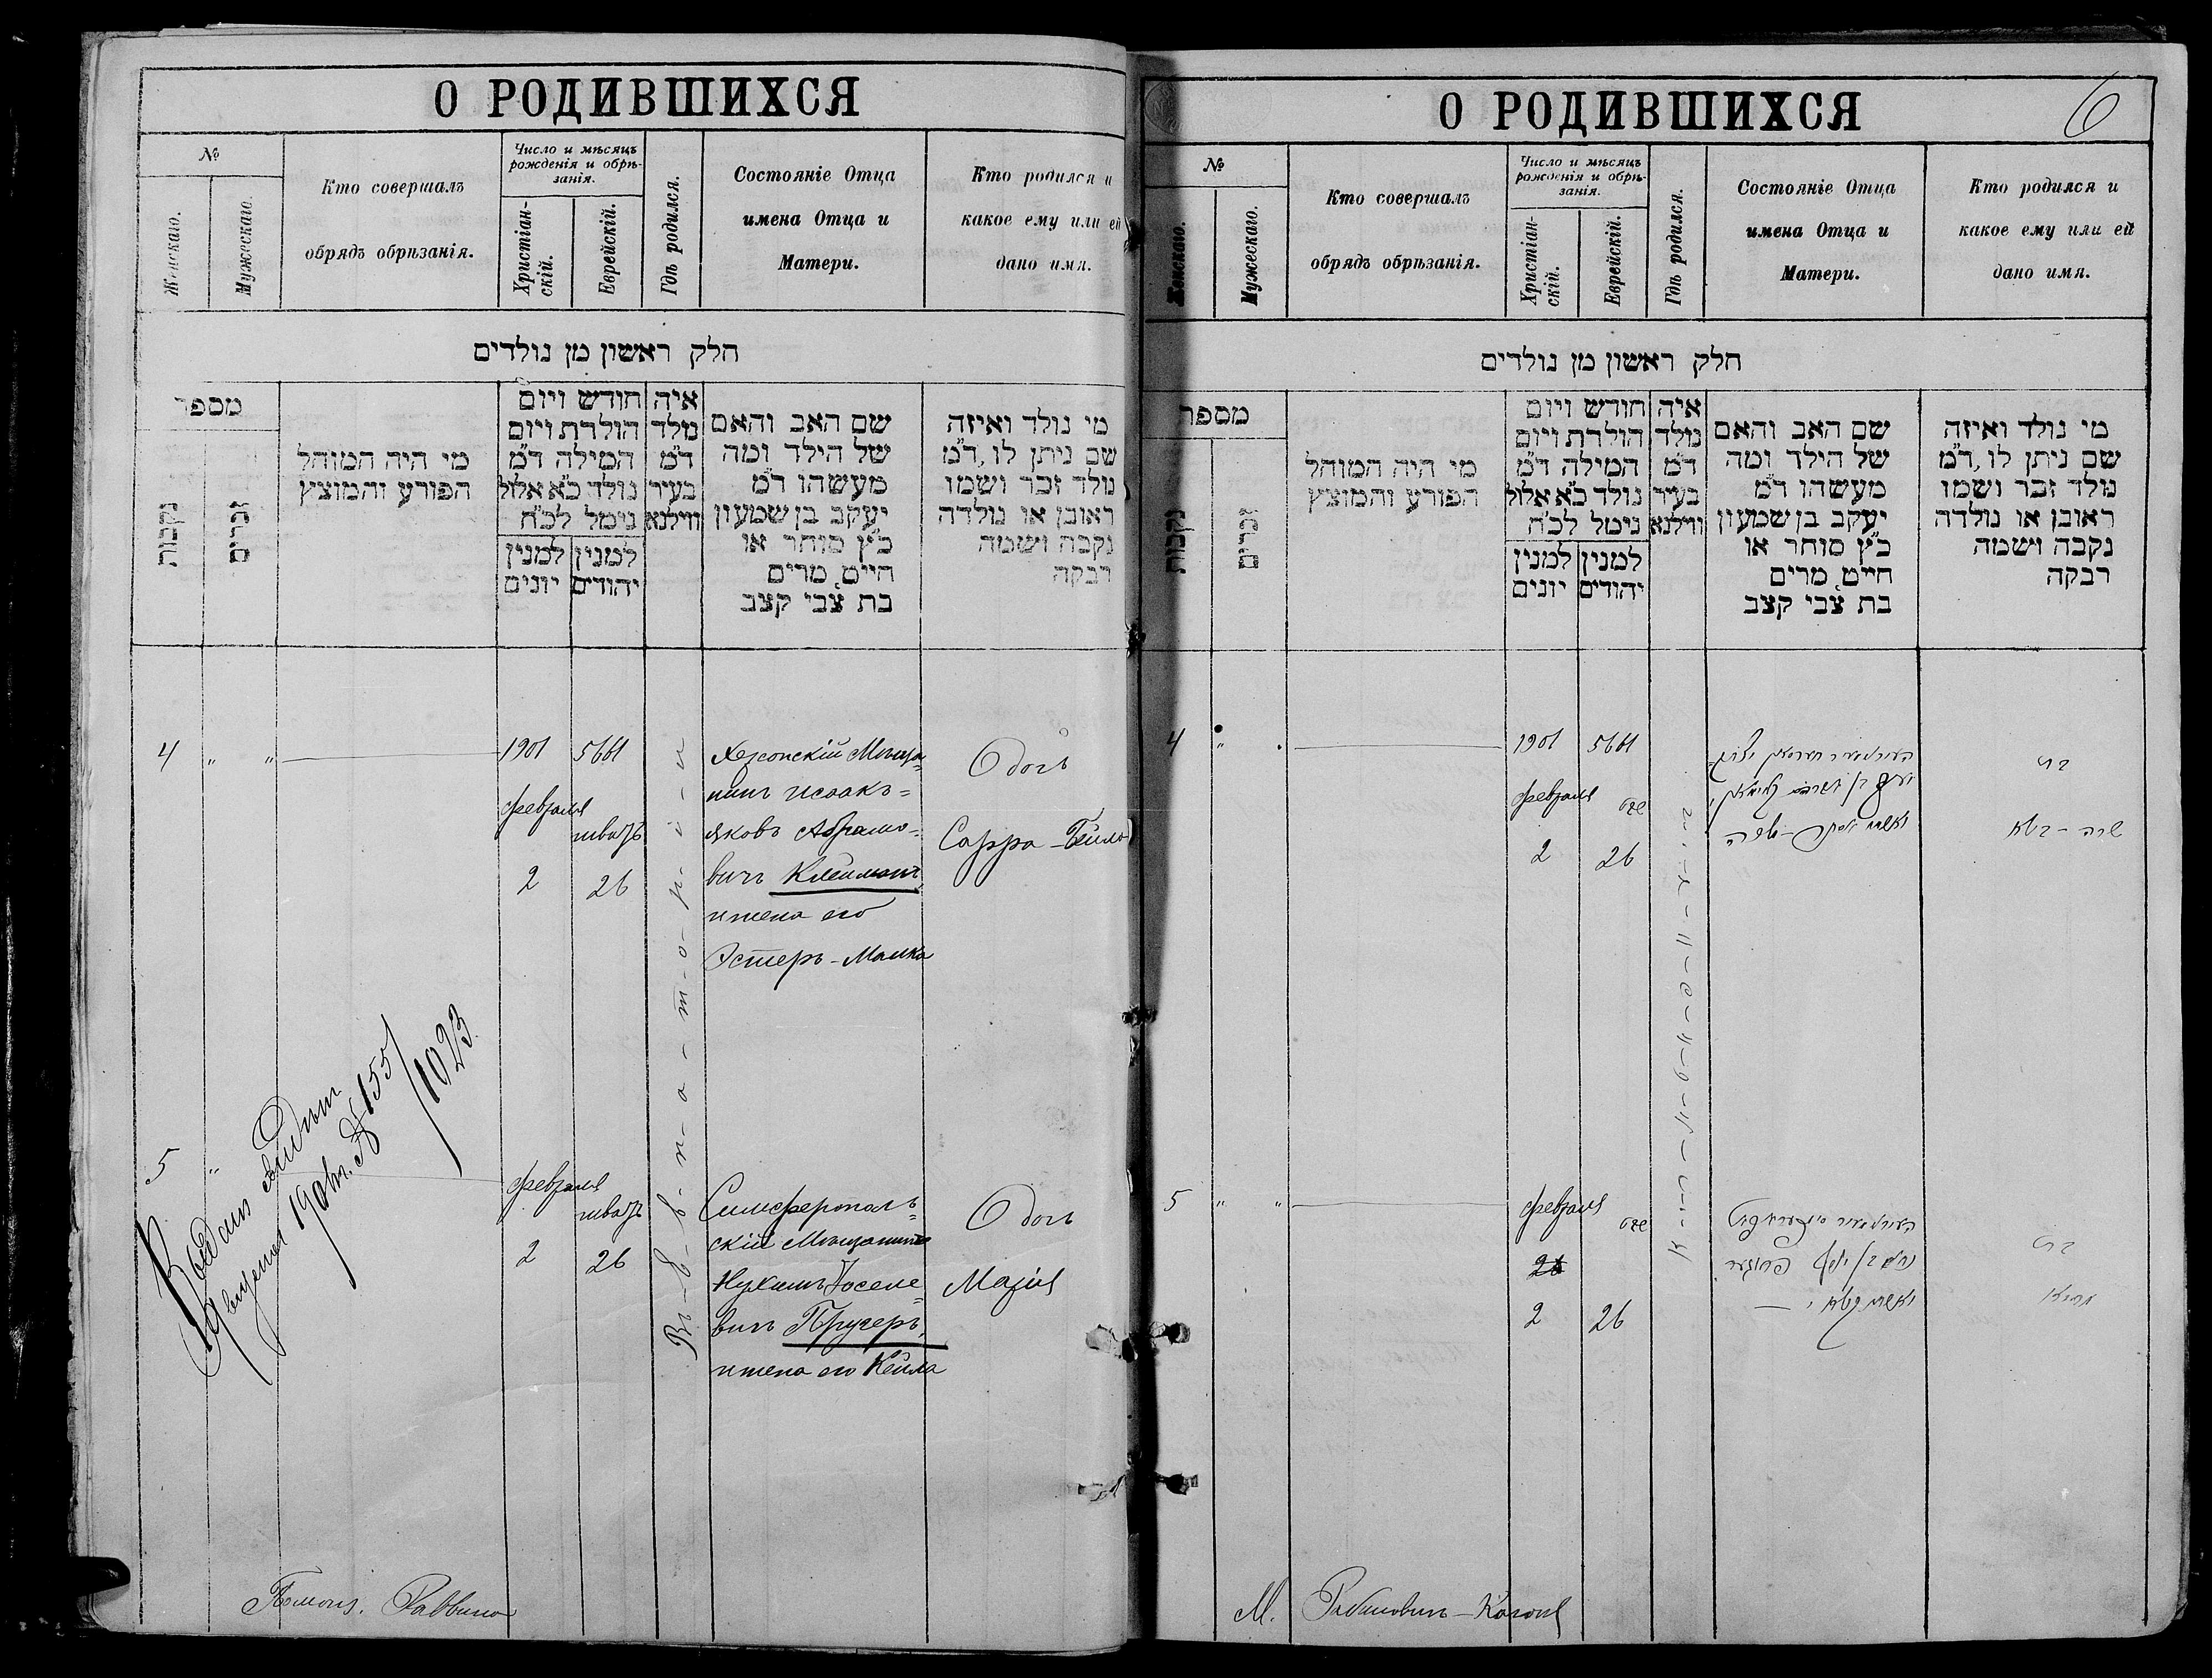 О РОДИВШИХСЯ
№
Женскаго.
Мужескаго.
Кто совершалъ
обрядъ обрѣзанія.
Число и мѣсяцъ
рожденія и обрѣ-
занія.
Христіан-
скій.
Еврейскій.
Гдѣ родился.
Состояніе Отца
имена Отца и
Матери.
Кто родился и
какое ему или ей
дано имя.
חלק ראשון מן נולדים
מספר
נקבות
זכרים
מי היה המוהל
הפורע והמוצץ
חודש ויום
הולדת ויום
המילה ד״מ
נולד כ״א אלול
נימל לכ״ח
למנין
יונים
למנין
יהודים
איה
נולד
ד״מ
בעיר
ווילנא
שם האב והאם
של הילד ומה
מעשהו ד״מ
יעקב בן שמעון
כ״ץ סוחר או
חייט מרים
בת צבי קצב
מי נולד ואיזה
שם ניתן לו ד״מ
נולד זכר ושמו
ראובן או נולדה
נקבה ושמה
רבקה
4 " "
1901
февраля
2
5661
шватъ
26
Въ Евпаторіи
Херсонскій Мѣща=
нинъ Исаакъ=
Яковъ Абрамо=
вичъ Клейманъ,
и жена его
Эстеръ-Малка
Дочь
Сарра-Бейла
5 "
Выданъ
1901 г. № 155/1023.
февраля
2
шватъ
26
Симферополь=
скій Мѣщанинъ
Нухимъ Іоселе=
вичъ Пругеръ,
и жена его Кейла
Дочь
Марія
Помощ. Раввина
О РОДИВШИХСЯ
6
№
Женскаго.
Мужескаго.
Кто совершалъ
обрядъ обрѣзанія.
Число и мѣсяцъ
рожденія и обрѣ-
занія.
Христіан-
скій.
Еврейскій.
Гдѣ родился.
Состояніе Отца
имена Отца и
Матери.
Кто родился и
какое ему или ей
дано имя.
חלק ראשון מן נולדים
מספר
נקבות
זכרים
מי היה המוהל
הפורע והמוצץ
חודש ויום
הולדת ויום
המילה ד״מ
נולד כ״א אלול
נימל לכ״ח
למנין
יונים
למנין
יהודים
איה
נולד
ד״מ
בעיר
ווילנא
שם האב והאם
של הילד ומה
מעשהו ד״מ
יעקב בן שמעון
כ״ץ סוחר או
חייט מרים
בת צבי קצב
מי נולד ואיזה
שם ניתן לו ד״מ
נולד זכר ושמו
ראובן או נולדה
נקבה ושמה
רבקה
4 "
1901
февраля
2
5661
שבט
26
בת
שרה-בילא
5 " "
февраля
2
שבט
26
בת
מריא
М. Рабиновичъ-Когонъ